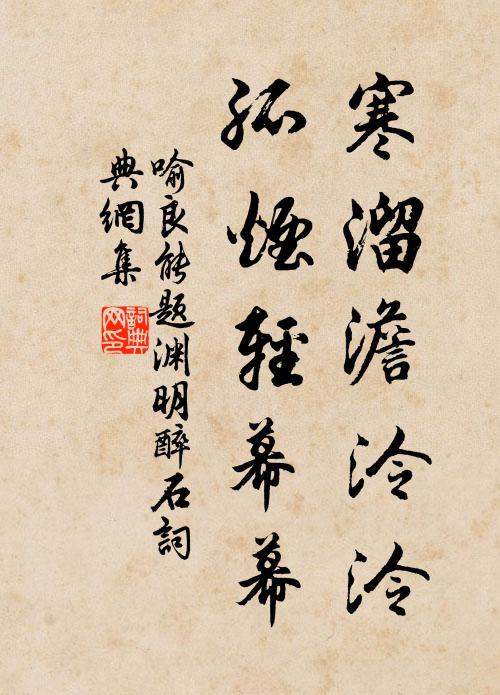 寒溜澹泠泠
孤煙輕幕幕
喻良能题渊明醉石詞
典網集
詞典
网印